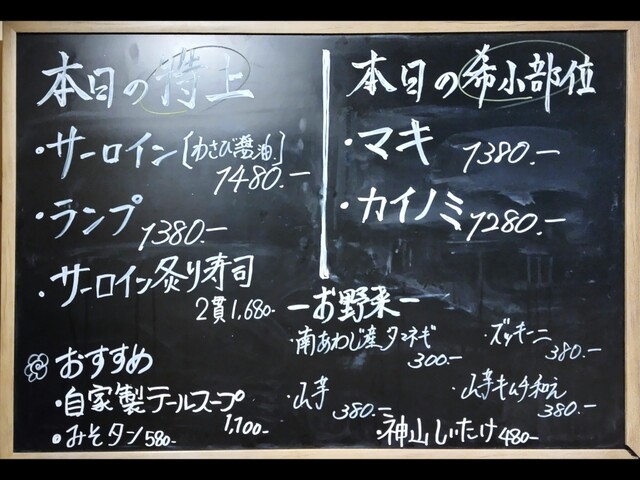 本日の特上
・サーロイン[わさび醤油]
1480.-
・ランプ
1380.-
・サーロイン炙り寿司
2貫1,680-
おすすめ
・自家製テールスープ
1,100-
・みそタン580-
本日の希少部位
・マキ 1380.-
・カイノミ 1280.-
-お野菜-
・南あわじ産タマネギ
300.-
・ズッキーニ
380.-
・山芋
380.-
・山芋キムチ和え
380.-
・神山しいたけ480-